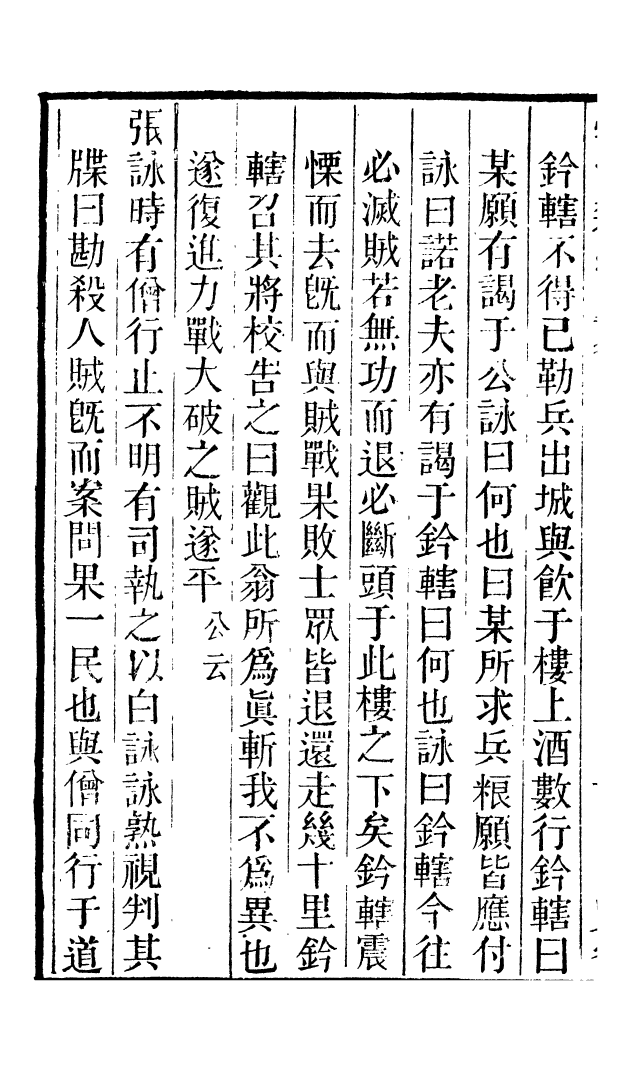 鈐轄不得已勒兵出城與飮于樓上酒數行鈐轄曰
某願有謁于公詠曰何也曰某所求兵粮願皆應付
詠曰諾老夫亦有謁于鈐轄曰何也詠曰鈐轄今往
必滅賊若無功而退必斷頭于此樓之下矣鈐轄震
慄而去旣而與賊戰果敗士眾皆退還走幾十里鈐
轄召其將校告之曰觀此翁所爲眞斬我不爲異也
遂復進力戰大破之賊遂平公云
張詠時有僧行止不明有司執之以白詠詠熟視判其
牒曰勘殺人賊旣而案問果一民也與僧同行于道